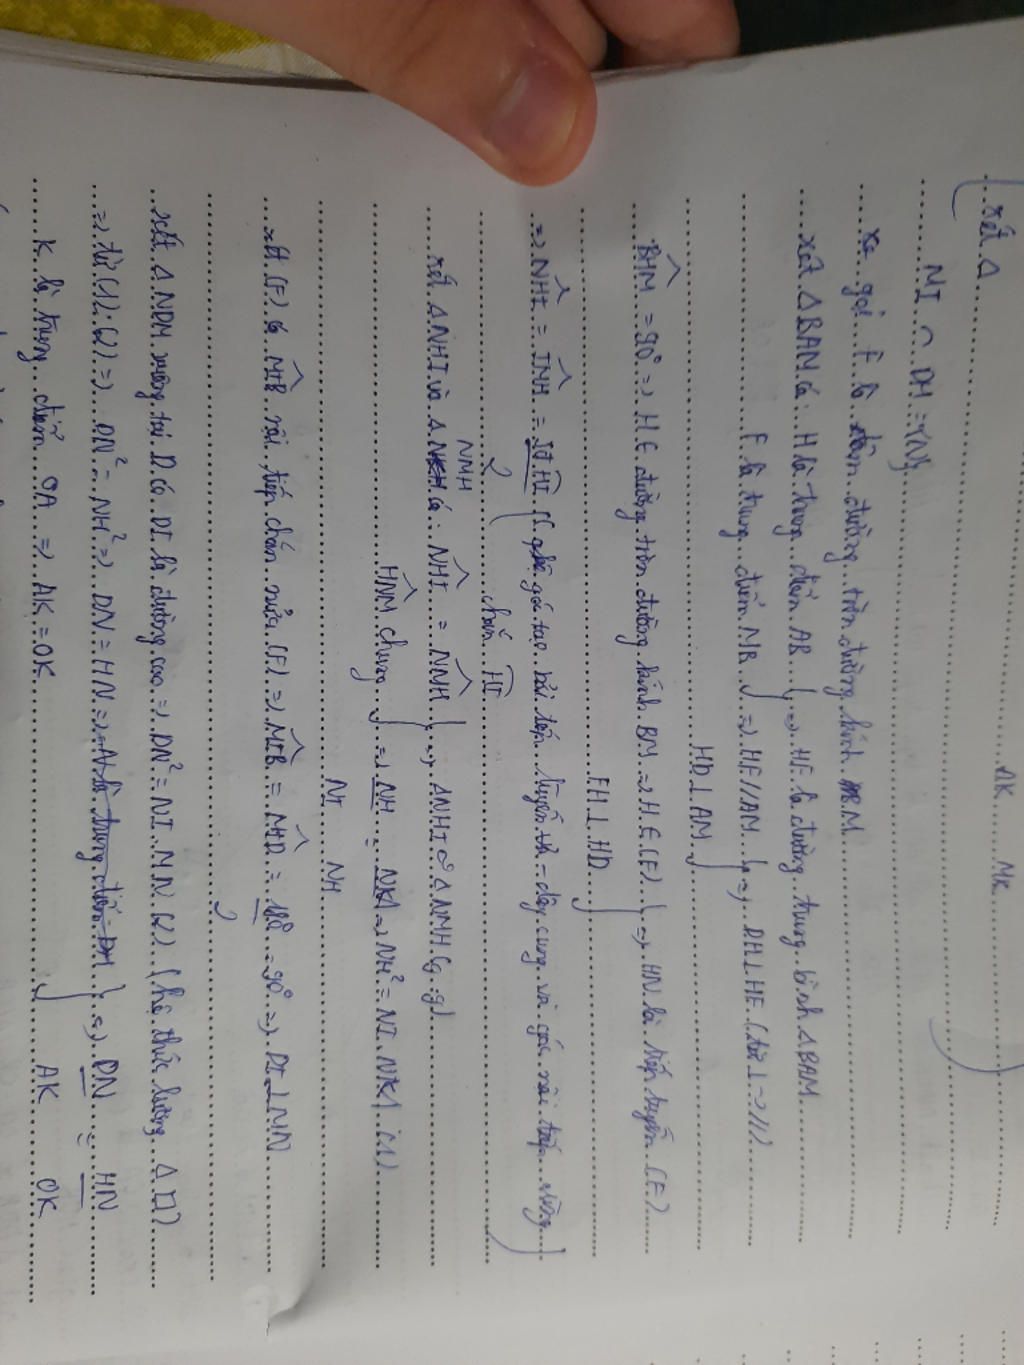 AK MK
xét Δ
MI ∩ DH = {N}
gọi F là tâm đường tròn đường kính BM
xét ΔBAM có: H là trung điểm AB } => HF là đường trung bình ΔBAM
F là trung điểm MB } => HF // AM } => DH ⊥ HF (từ ⊥ -> //)
HD ⊥ AM
\widehat{BHM} = 90° => H ∈ đường tròn đường kính BM => H ∈ (F) } => HN là tiếp tuyến (F)
FH ⊥ HD
=> \widehat{NHI} = \widehat{IMH} = sđ HI / 2 ( góc tạo bởi tiếp tuyến - dây cung và góc nội tiếp cùng chắn HI )
xét ΔNHI và ΔNMH có: \widehat{NHI} = \widehat{NMH} } => ΔNHI ∽ ΔNMH (g.g)
\widehat{HNM} chung } => NH / NI = NM / NH => NH² = NI.NM (1)
xét (F) có \widehat{MIB} nội tiếp chắn nửa (F) => \widehat{MIB} = \widehat{MID} = 180° / 2 = 90° => DI ⊥ MN
xét ΔNDM vuông tại D có DI là đường cao => DN² = NI.MN (2) (hệ thức lượng Δ□)
=> từ (1), (2) => DN² = NH² => DN = HN => } => DN / AK = HN / OK
K là trung điểm OA => AK = OK